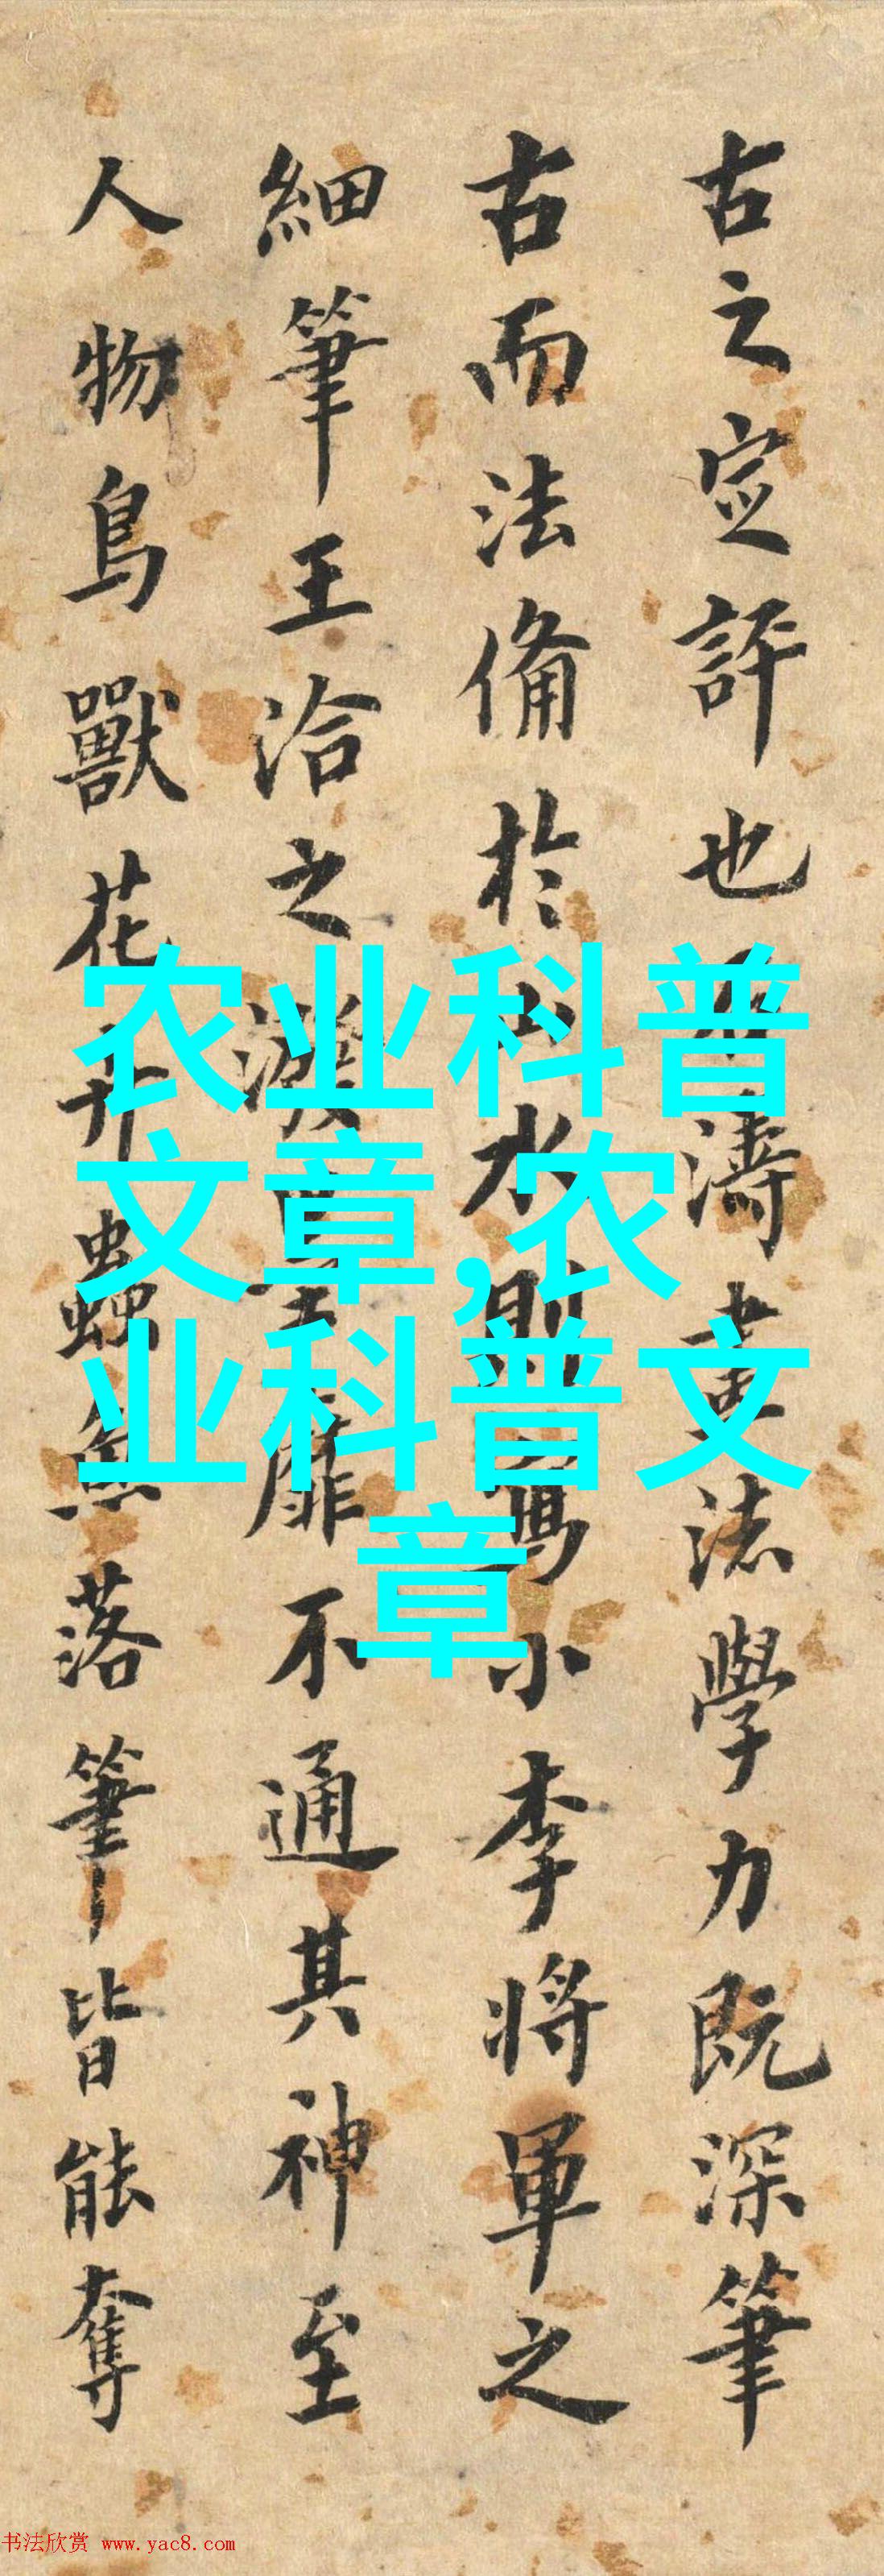 古之定評也石濤畫法學力既深筆
古而法備於山水則寫小李將軍之
細筆王洽之潑墨靡不通其神至
人物鳥獸花卉蟲魚落筆皆能奪
农业科普
文章,农
业科普文
章
书法欣赏 www.yac8.com